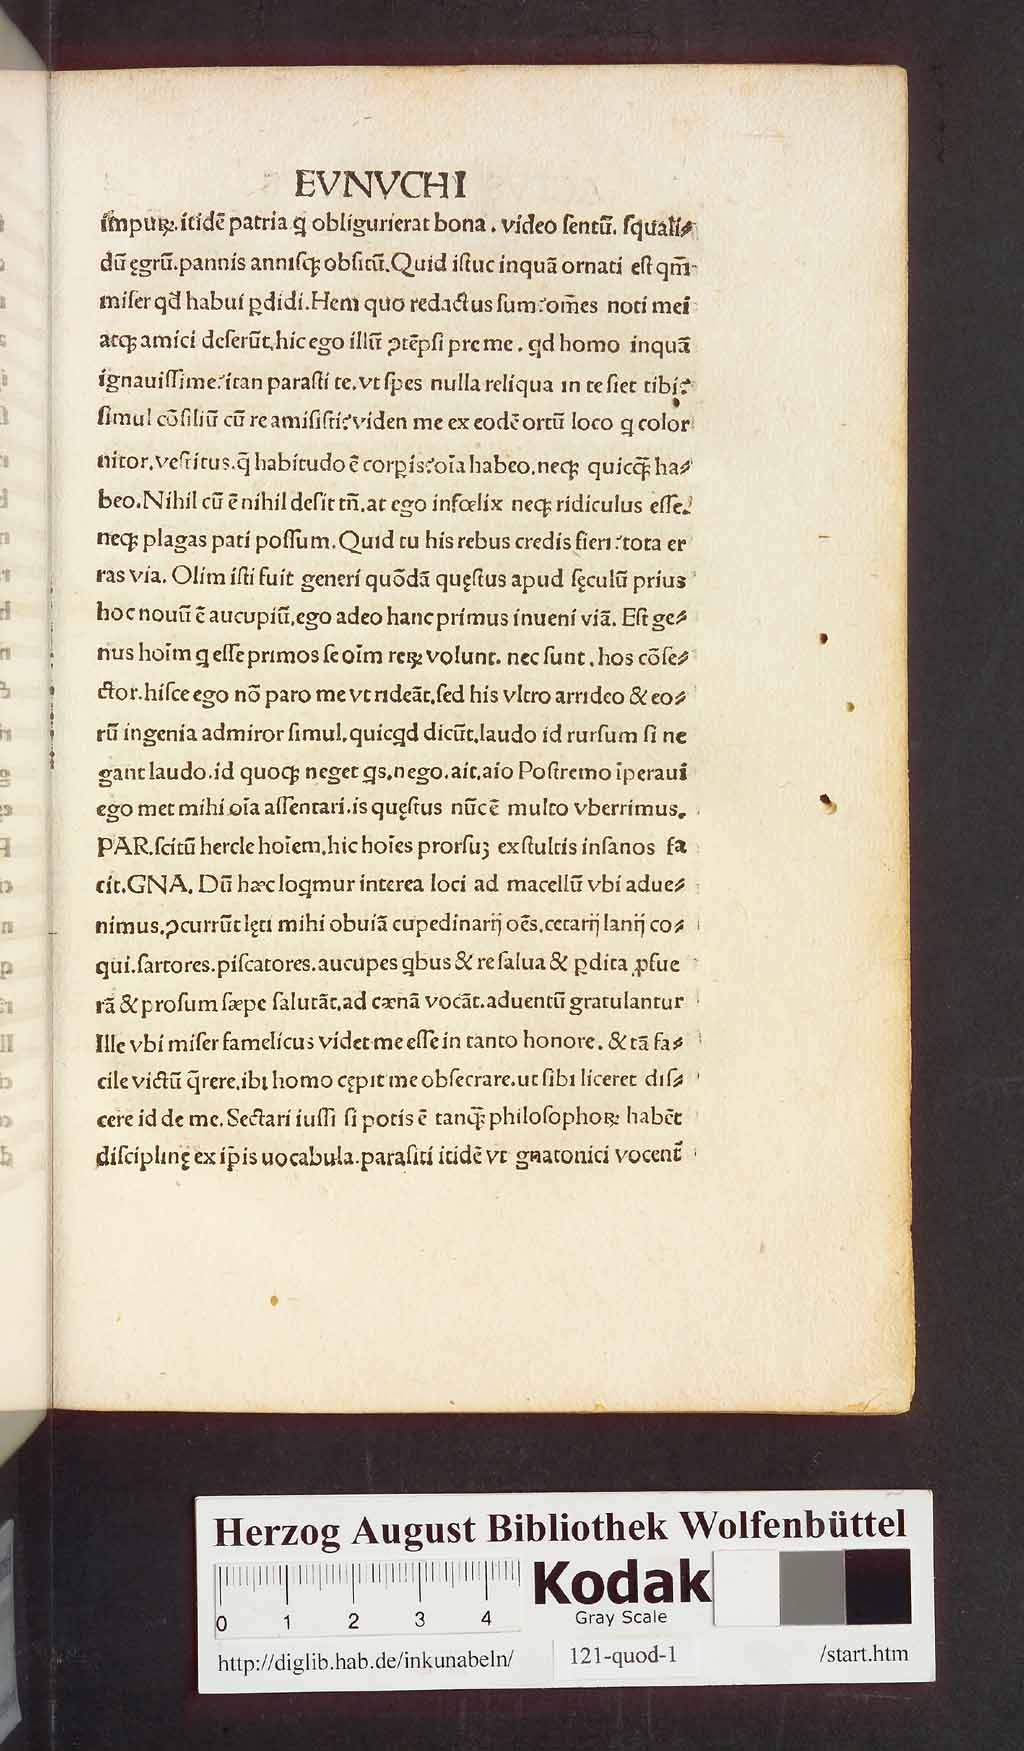 EVNVCHI
impuꝝ.itidē patria q̄ obligurierat bona. video ſentū. ſquali⸗
dū ęgrū.pannis anniſqꝫ obſitū.Quid iſtuc inquā ornati eſt qm̄
miſer qd̄ habui ꝑdidi.Hem quo redactus ſum:om̄es noti mei
atqꝫ amici deſerūt.hic ego illū ꝯtēpſi pre me. qd homo inquā
ignauiſſime:itan paraſti te.vt ſpes nulla reliqua in te ſiet tibi?
ſimul cōſiliū cū re amiſiſti?viden me ex eodē ortū loco q color
nitor.veſtitus.q̄ habitudo ē corꝑis:oīa habeo.neqꝫ quicq̄ ha⸗
beo.Nihil cū ē nihil deſit tn̄.at ego infœlix neqꝫ ridiculus eſſe.
neqꝫ plagas pati poſſum.Quid tu his rebus credis fieri:tota er
ras via. Olim iſti fuit generi quōdā quęſtus apud ſęculū prius
hoc nouū ē aucupiū.ego adeo hanc primus inueni viā. Eſt ge⸗
nus hoīm q eſſe primos ſe oīm reꝝ volunt. nec ſunt. hos cōſe⸗
ctor.hiſce ego nō paro me vt rideāt.ſed his vltro arrideo & eo⸗
rū ingenia admiror ſimul.quicqd dicūt.laudo id rurſum ſi ne
gant laudo.id quoqꝫ neget qs.nego.ait.aio Poſtremo īperaui
ego met mihi oīa aſſentari.is quęſtus nūc ē multo vberrimus.
PAR.ſcitū hercle hoīem.hic hoīes prorſuꝫ ex ſtultis inſanos fa
cit.GNA. Dū hæc loqmur interea loci ad macellū vbi adue⸗
nimus.ꝯcurrūt lęti mihi obuiā cupedinarij oēs.cetarij lanij co⸗
qui.fartores.piſcatores.aucupes qbus & re ſalua & ꝑdita ꝓfue
rā & proſum ſæpe ſalutāt.ad cænā vocāt.aduentū gratulantur
Ille vbi miſer famelicus videt me eſſe in tanto honore. & tā fa⸗
cile victū q̄rere.ibi homo cępit me obſecrare.ut ſibi liceret diſ⸗
cere id de me. Sectari iuſſi ſi potis ē tanq̄ philoſophoꝝ habēt
diſciplinę ex ip̄is uocabula.paraſiti itidē vt gnatonici vocent̄
Herzog August Bibliothek Wolfenbüttel
0 1 2 3 4
Kodak
Gray Scale
http://diglib.hab.de/inkunabeln/ 121-quod-1 /start.htm